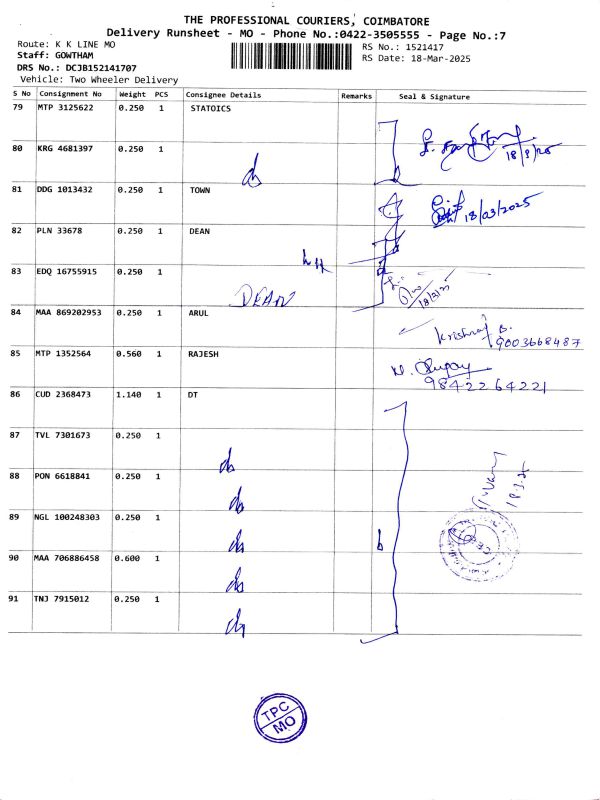 THE PROFESSIONAL COURIERS, COIMBATORE
Delivery Runsheet - MO - Phone No.:0422-3505555 - Page No.:7
Route: K K LINE MO
RS No.: 1521417
Staff: GOWTHAM
RS Date: 18-Mar-2025
DRS No.: DCJB152141707
Vehicle: Two Wheeler Delivery
S No Consignment No Weight PCS Consignee Details Remarks Seal & Signature
79 MTP 3125622 0.250 1 STATOICS
80 KRG 4681397 0.250 1
18/3/25
81 DDG 1013432 0.250 1 TOWN
18/03/2025
82 PLN 33678 0.250 1 DEAN
83 EDQ 16755915 0.250 1
DEAN
18/3/25
84 MAA 869202953 0.250 1 ARUL
Krishnaj B.
9003668487
85 MTP 1352564 0.560 1 RAJESH
98422 64221
86 CUD 2368473 1.140 1 DT
87 TVL 7301673 0.250 1
88 PON 6618841 0.250 1
89 NGL 100248303 0.250 1
90 MAA 706886458 0.600 1
91 TNJ 7915012 0.250 1
TPC
MO